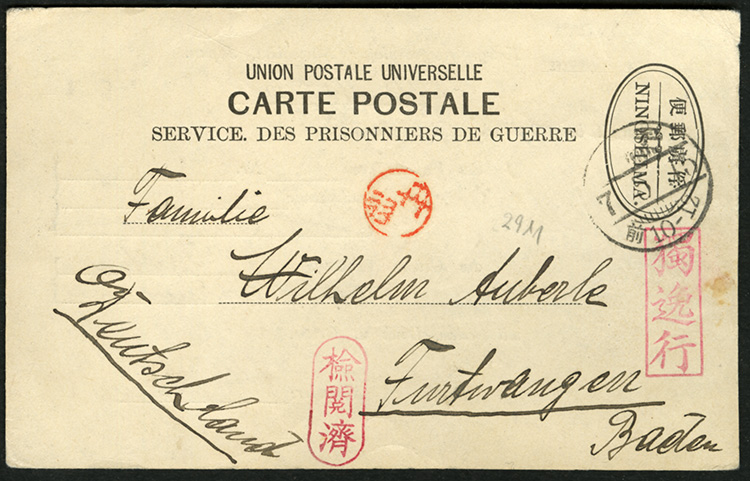 UNION POSTALE UNIVERSELLE
CARTE POSTALE
SERVICE. DES PRISONNIERS DE GUERRE
便郵虜俘
NINOSHIMA
前
Familie
2911
Wilhelm Auberle
獨逸行
Deutschland
檢閲濟
Furtwangen
Baden